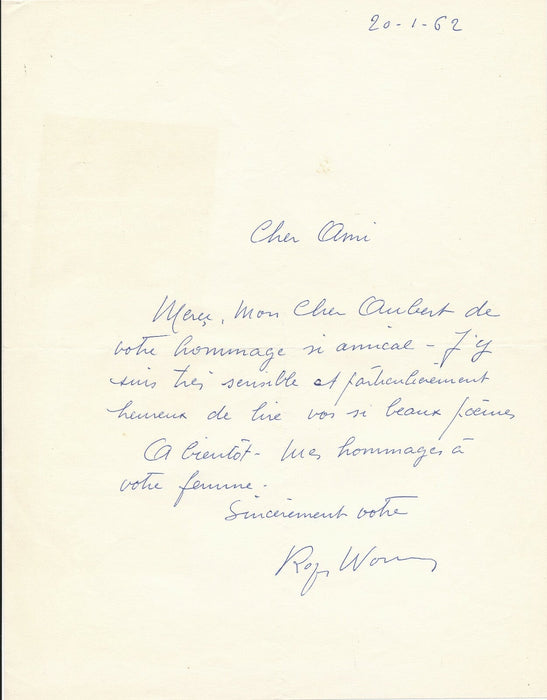 20-1-62
Cher Ami
Merci, Mon Cher Aubert de
votre hommage si amical - J'y
suis très sensible et particulièrement
heureux de lire vos si beaux poèmes
A bientôt - Mes hommages à
votre femme -
Sincèrement votre
Roger